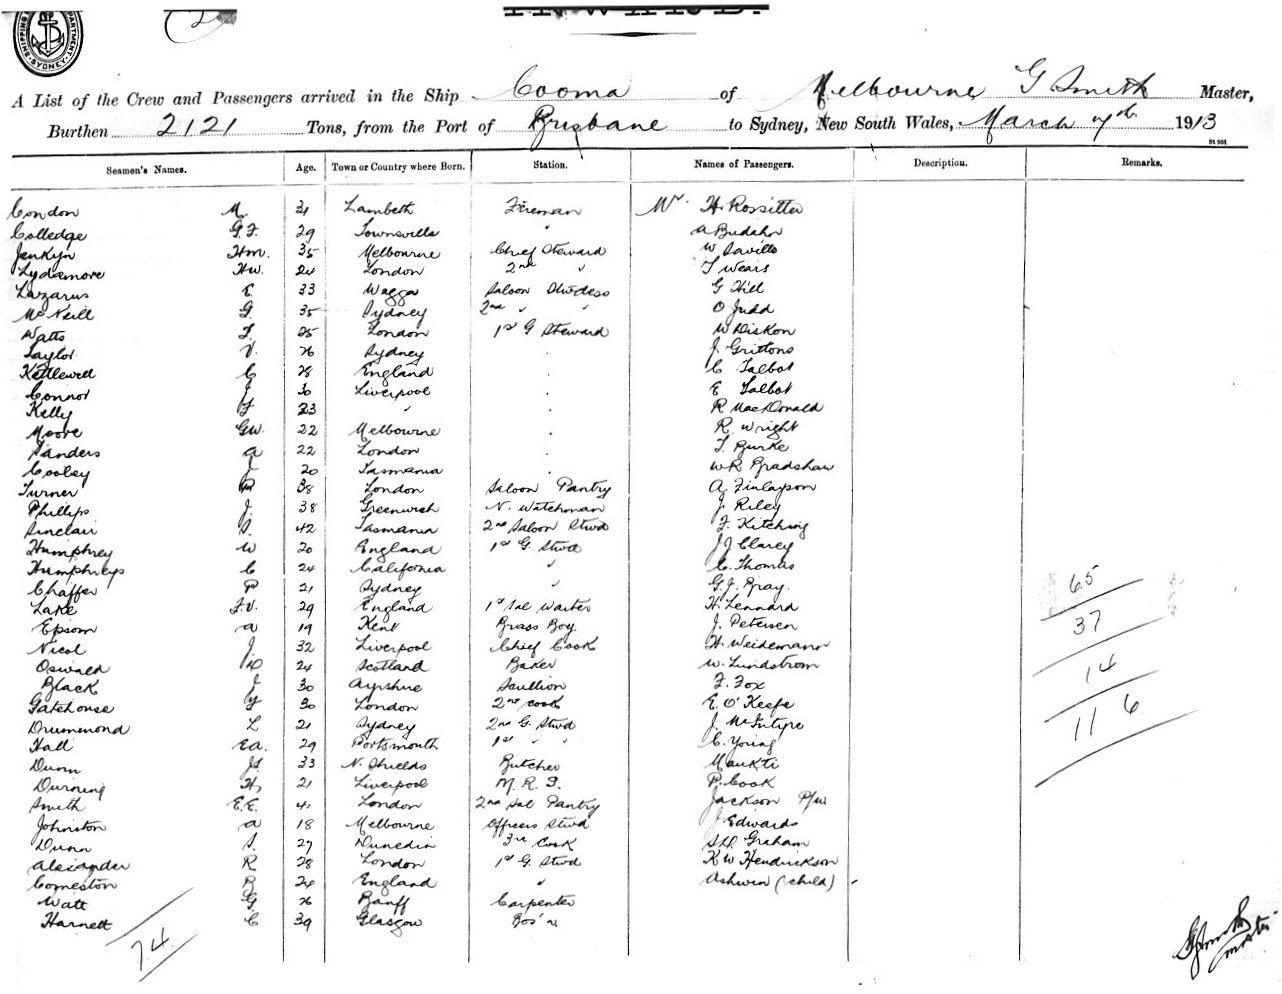 SHIPPING DEPARTMENT SYDNEY
2
INWARD.
A List of the Crew and Passengers arrived in the Ship Cooma of Melbourne G Smith Master,
Burthen 2121 Tons, from the Port of Brisbane to Sydney, New South Wales, March 7th 1913
St 991
Seamen's Names. Age. Town or Country where Born. Station. Names of Passengers. Description. Remarks.
Condon M. 31 Lambeth Fireman Mr. H. Rossitter
Colledge G.F. 29 Townsville " A
Jenkyn Hm. 35 Melbourne Chief Steward W Saville
Lydamore Hw. 24 London 2nd " T Wears
Lazarus E. 33 Wagga Saloon Stwdess G Hill
McNeill G. 35 Sydney 2nd " " O Judd
Watts F. 25 London 1st G Steward W Diskon
Taylor V. 26 Sydney . J. Grittons
Kettlewell C 28 England C Talbot
Connor J 30 Liverpool . E Talbot
Kelly F 23 " . R MacDonald
Moore GW. 22 Melbourne . R. Wright
Sanders A 22 London T. Burke
Cooley J 20 Tasmania . WR Bradshaw
Turner 38 London Saloon Pantry A Finlayson
Phillips J. 38 Greenwich N. Watchman J. Riley
Sinclair S. 42 Tasmania 2nd Saloon Stwd F. Kitching
Humphrey W 20 England 1st G. Stwd JJ Clarey
Humphreys C 24 California " C. Thomas
Chaffer P 21 Sydney " G.J. Gray. 65
Lake F.V. 29 England 1st Sal Waiter H. Lennard
Epsom A 19 Kent Brass Boy J. Petersen 37
Nicol J. 32 Liverpool Chief Cook H. Weidemann
Oswald 24 Scotland Baker W. Lundstrom 14
Black J 30 Ayrshire Scullion F. Fox
Gatehouse F 30 London 2nd Cook E. O'Keefe 116
Drummond L 21 Sydney 2nd G. Stwd J. McIntyre
Hall Ea. 29 Portsmouth 1st " " C. Young
Dunn Js 33 N. Shields Butcher Maukti
Durning H, 21 Liverpool M.R.S. P. Cook
Smith E.E. 41 London 2nd Sal Pantry Jackson P/w
Johnston A 18 Melbourne Officers Stwd J Edwards
Dunn S. 27 Dunedin 3rd Cook Graham
Alexander R 28 London 1st G. Stwd K W Hendrickson
Comeston B 24 England " Ashwin (child)
Watt G 26 Banff Carpenter
Harnett C 39 Glasgow Bos'n
74
G Smith
master